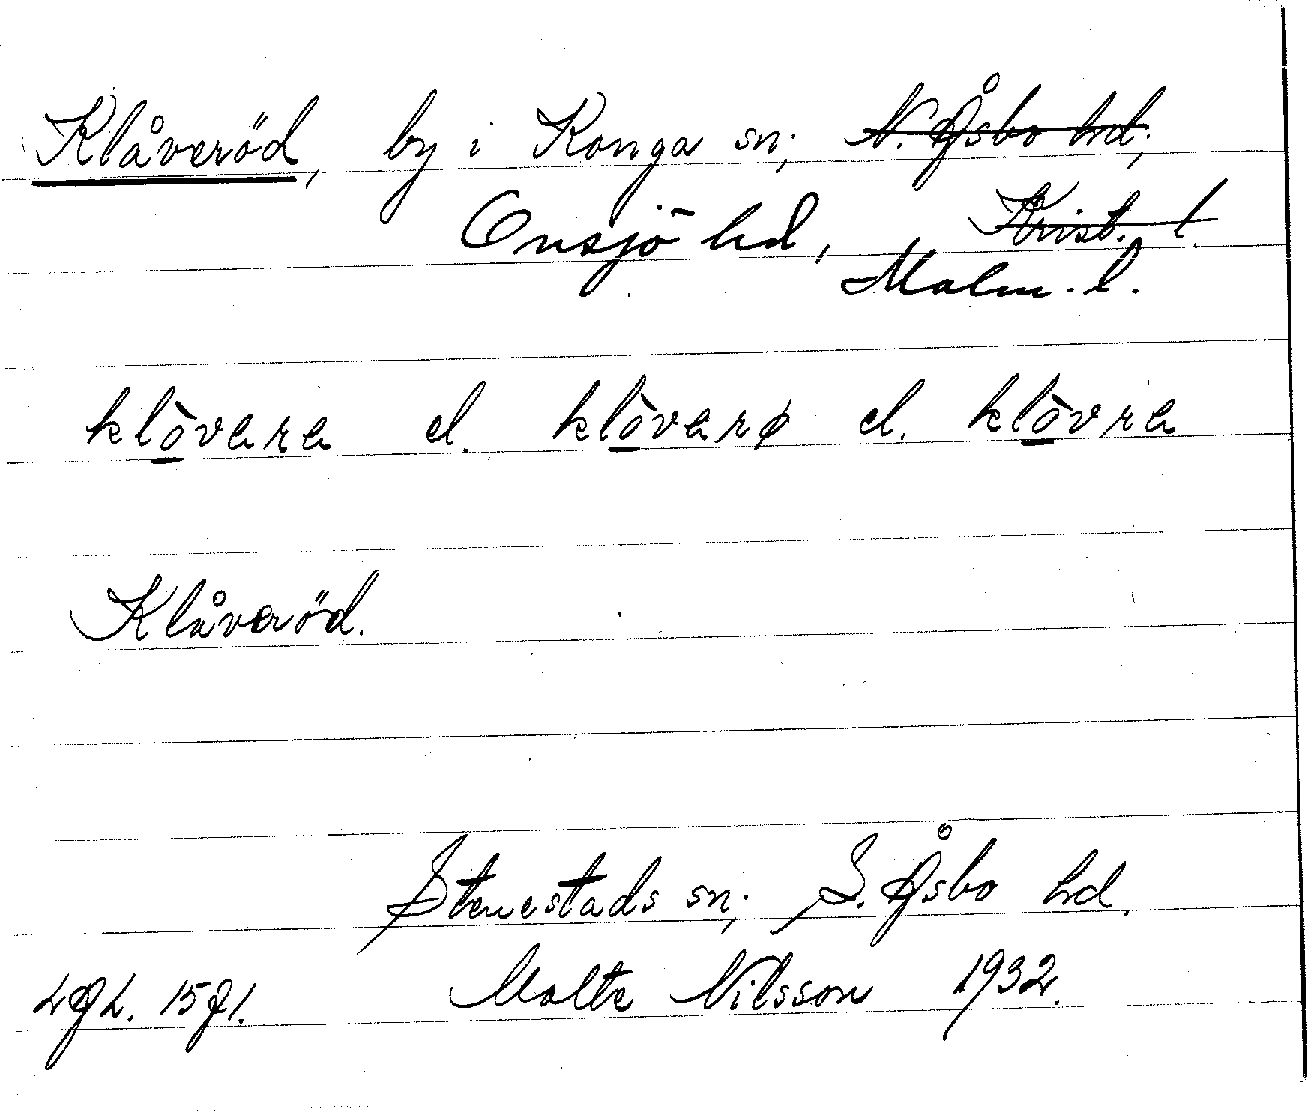 Klåveröd, by i Konga sn; N. Åsbo hd;
Onsjö hd, Krist. l.
Malm. l.
klòvara el. klòvarø el. klòvra
Klåveröd.
Stenestads sn; S. Åsbo hd.
Malte Nilsson 1932.